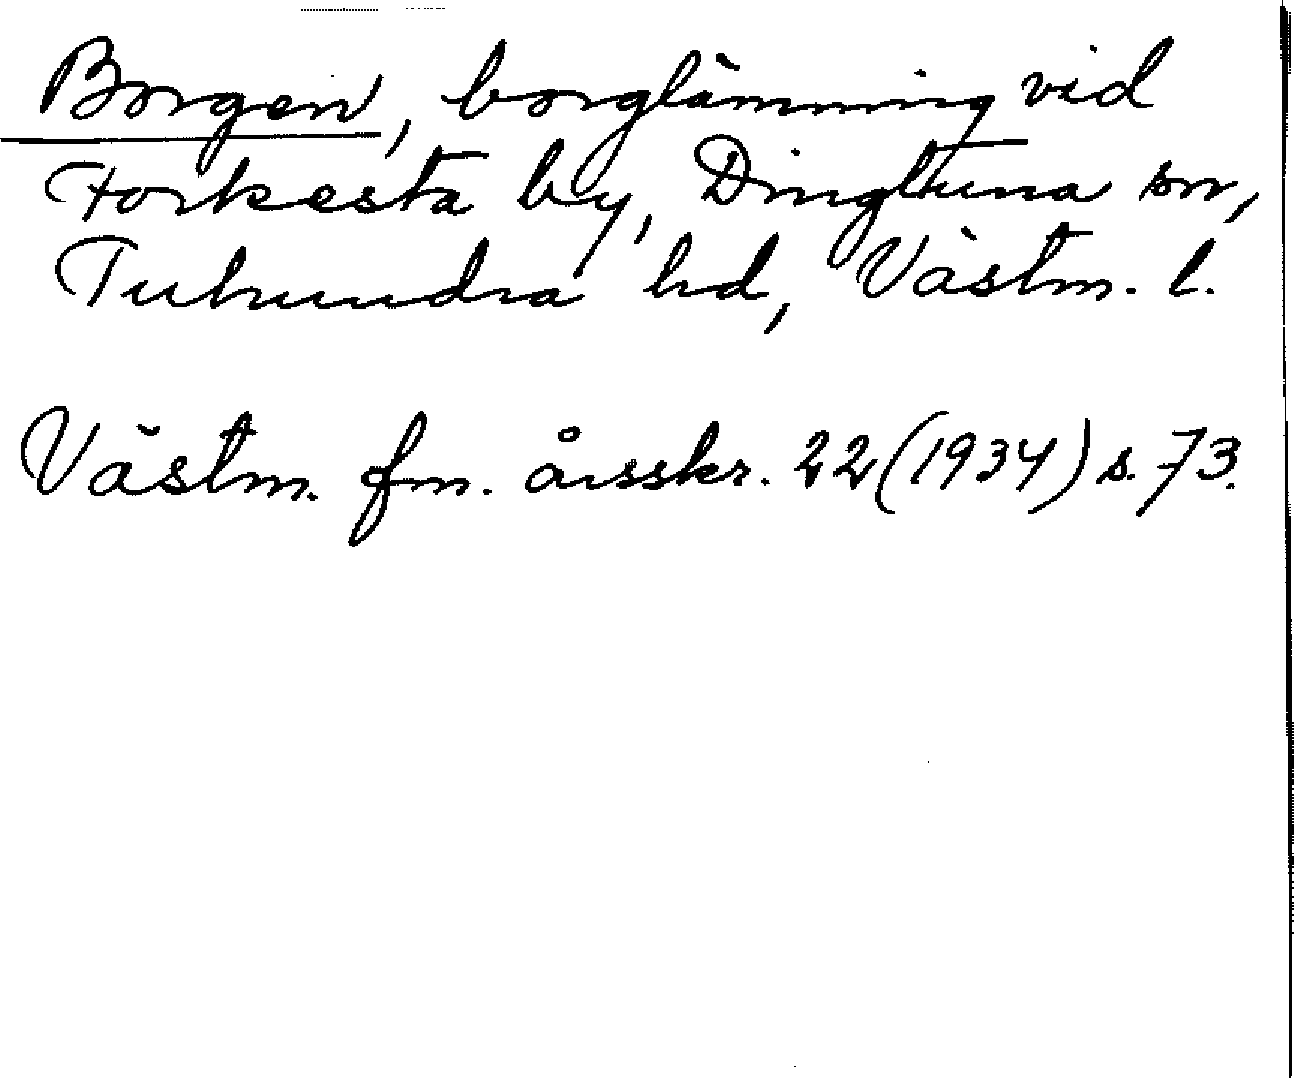 Borgen, borglämning vid
Forkesta by, Dingtuna sn,
Tuhundra hd, Västm. l.
Västm. fm. årsskr. 22 (1934) s. 73.